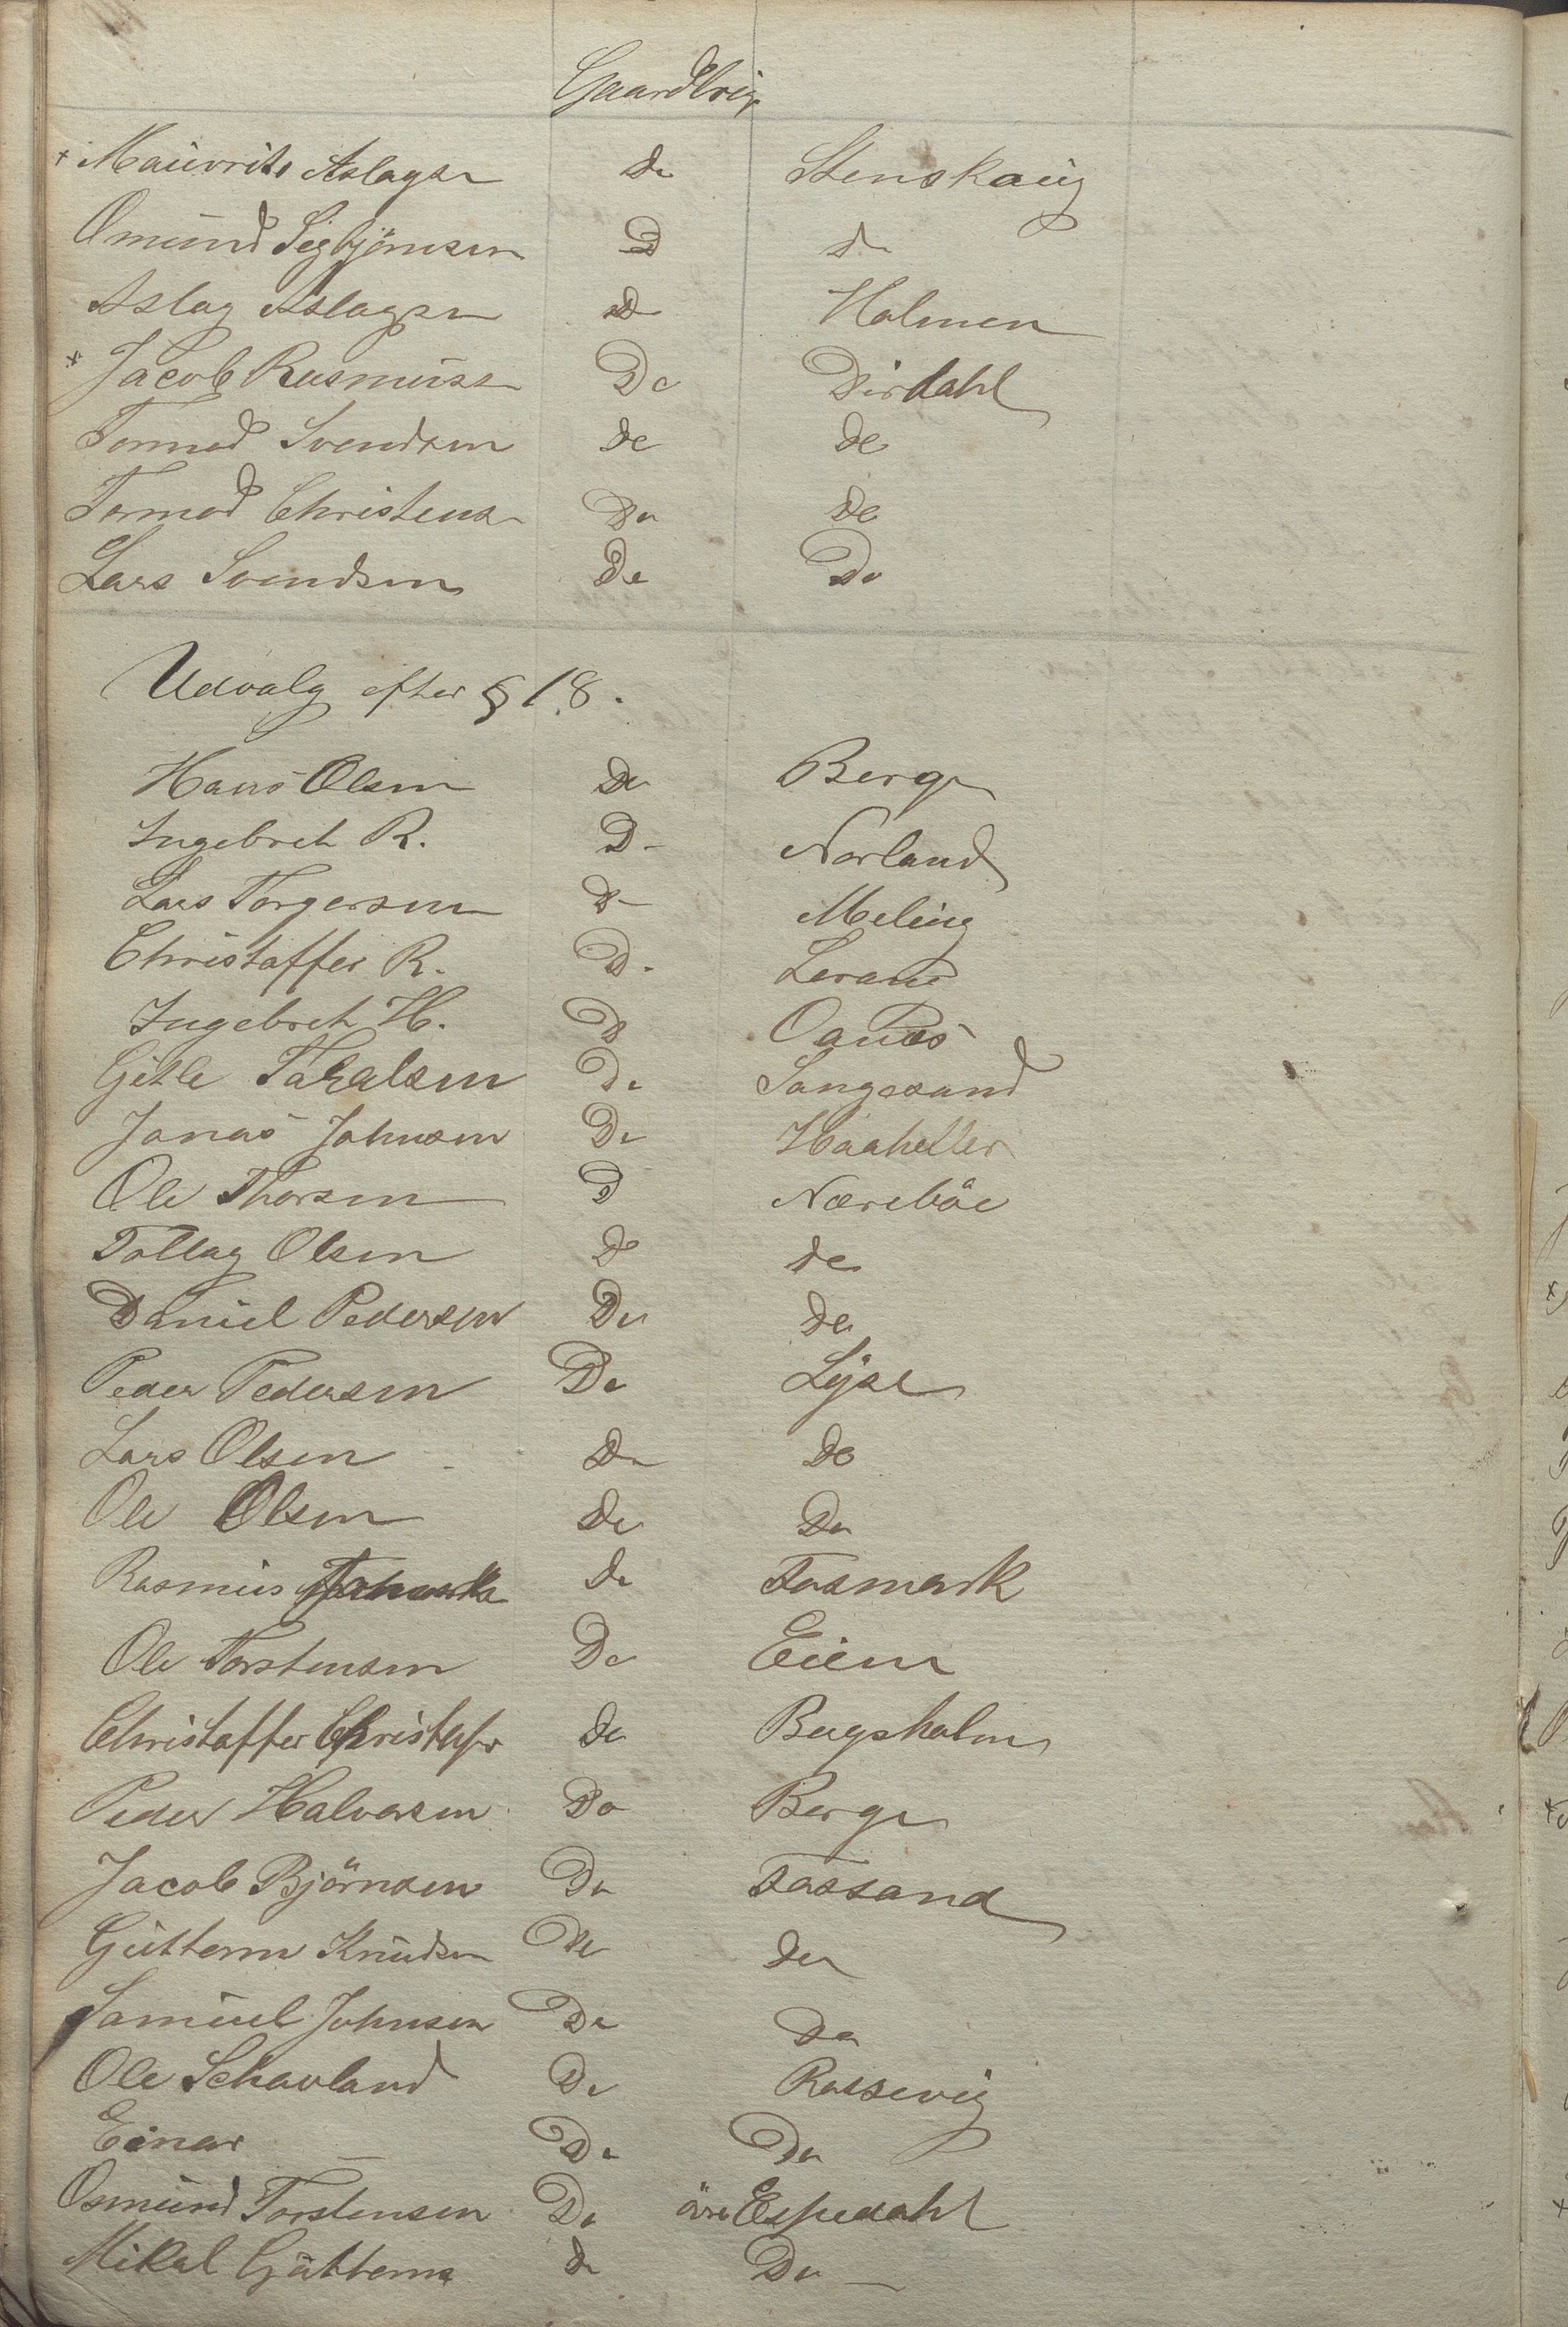 Gaardbrug
+ Mauvrits Aslagsen Do Stenskaug
Omund Sigbjörnsen D do
Aslag Aslagsen D Holmen
+ Jacob Rasmuss Do Dirdahl
Tormod Svendsen do do
Tormod Christens Do do
Lars Svendsen Do Do
Udvalg efter § 18.
Hans Olsen Do Berge
Ingebret R. D- Norland
Lars Torgersen D- Meling
Christaffer R. D. Lerane
Ingebret H. D Oanæs
Gitle Taralsen Do Sangesand
Jonas Johnsen Do Haaheller
Ole Thorsen D Næreböe
Tollag Olsen Do do
Daniel Pedersen Do do
Peder Pedersen Do Lÿse
Lars Olsen Do do
Ole Olsen do Do
Rasmus do Fosmark
Ole Torstensen Do Eiene
Christaffer Christofr do Bergsholm
Peder Halvorsen Do Berge
Jacob Björnsen Do Fossand
Guttorm Knudsen do do
Samuel Johnsen Do do
Ole Schavland Do Rossevig
Einar — Do Do
Osmund Torstensen Do övre Espedahl
Mikal Guttorms do Do —